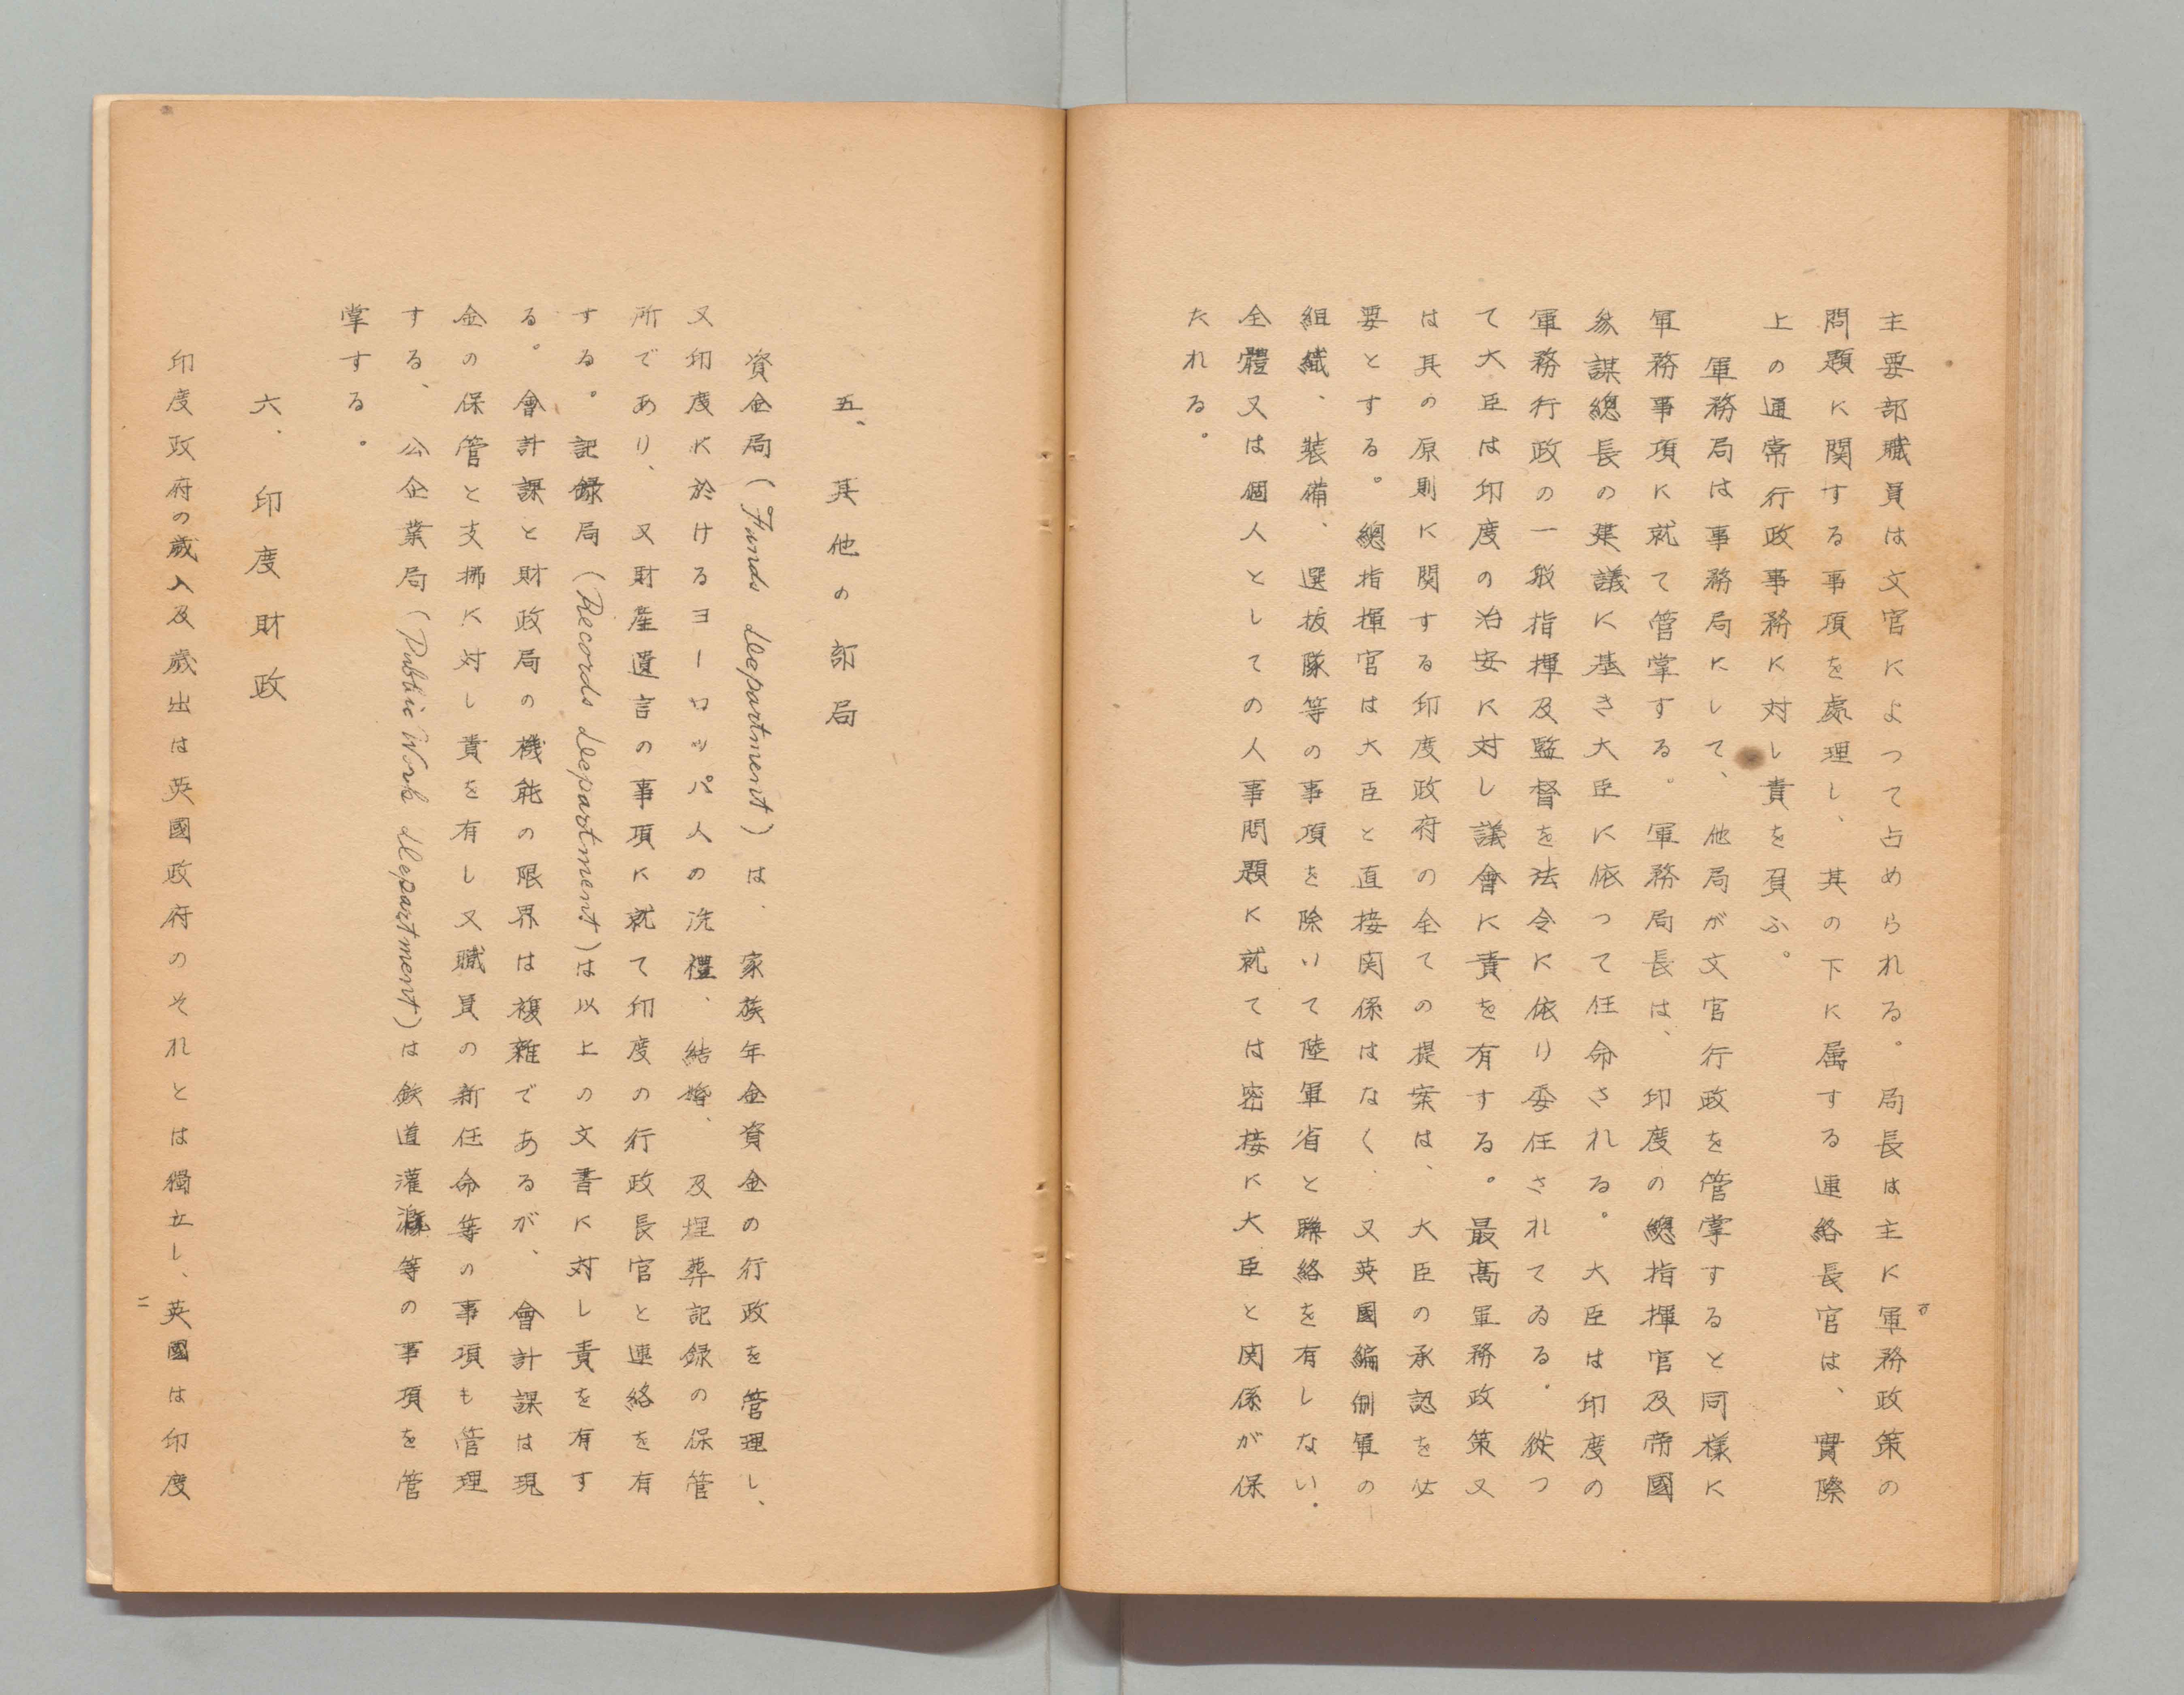 主要部職員は文官によつて占められる。局長は主に軍務政策の
問題に関する事項を處理し、其の下に属する連絡長官は、實際
上の通常行政事務に対し責を負ふ。
軍務局は事務局にして、他局が文官行政を管掌すると同樣に
軍務事項に就て管掌する。軍務局長は、印度の總指揮官及帝國
参謀總長の建議に基き大臣に依つて任命される。大臣は印度の
軍務行政の一般指揮及監督を法令に依り委任されてゐる。従つ
て大臣は印度の治安に対し議會に責を有する。最高軍務政策又
は其の原則に関する印度政府の全ての提案は、大臣の承認を必
要とする。總指揮官は大臣と直接関係はなく、又英國編制軍の
組織、装備、選抜隊等の事項を除いて陸軍省と聯絡を有しない。
全體又は個人としての人事問題に就ては密接に大臣と関係が保
たれる。
五、其他の部局
資金局(Funds department)は、家族年金資金の行政を管理し、
又印度に於けるヨーロッパ人の洗禮、結婚、及埋葬記録の保管
所であり、又財産遺言の事項に就て印度の行政長官と連絡を有
する。記録局(Records department)は以上の文書に対し責を有す
る。會計課と財政局の機能の限界は複雜であるが、會計課は現
金の保管と支拂に対し責を有し又職員の新任命等の事項も管理
する、公企業局(Public Work department)は鉄道灌漑等の事項を管
掌する。
六、印度財政
印度政府の歳入及歳出は英國政府のそれとは獨立し、英國は印度